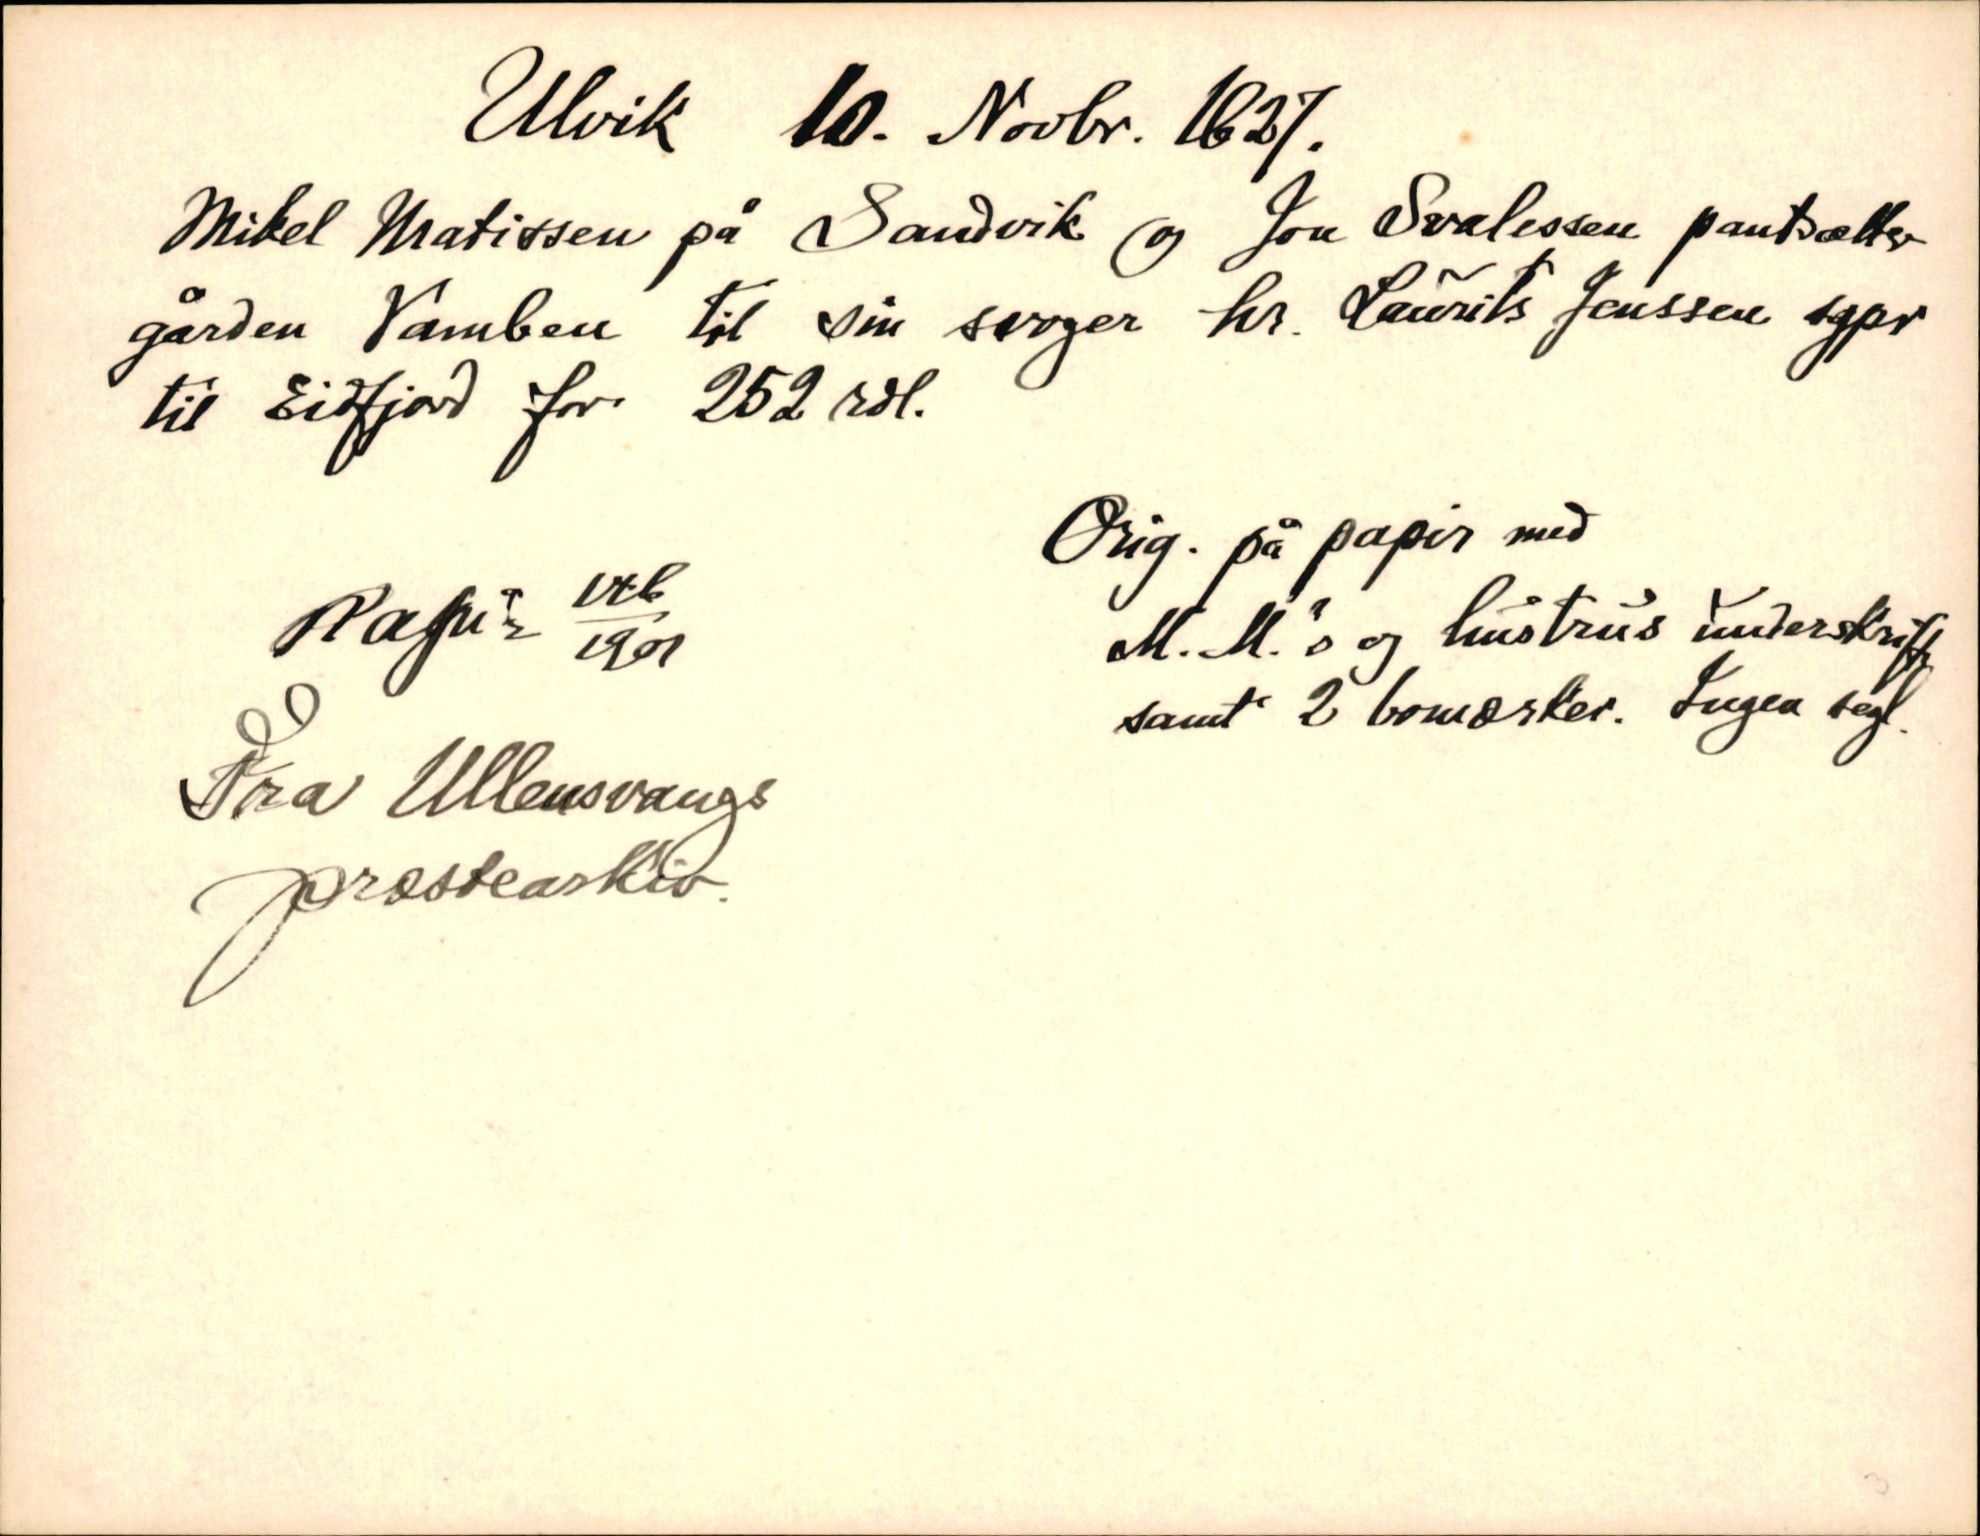 Ulvik 10. Novbr. 1627.
Mikel Matissen på Sandvik og Jon Svalessen pantsætter
gården Vamben til sin svoger hr. Laurits Jenssen sgpr
til Eidfjord for 252 rdl.
Orig. på papir med
M. M.'s og hustrus underskrift
samt 2 bomærker. Ingen segl.
Papir
1901
Fra Ullensvangs
prestearkiv.
3